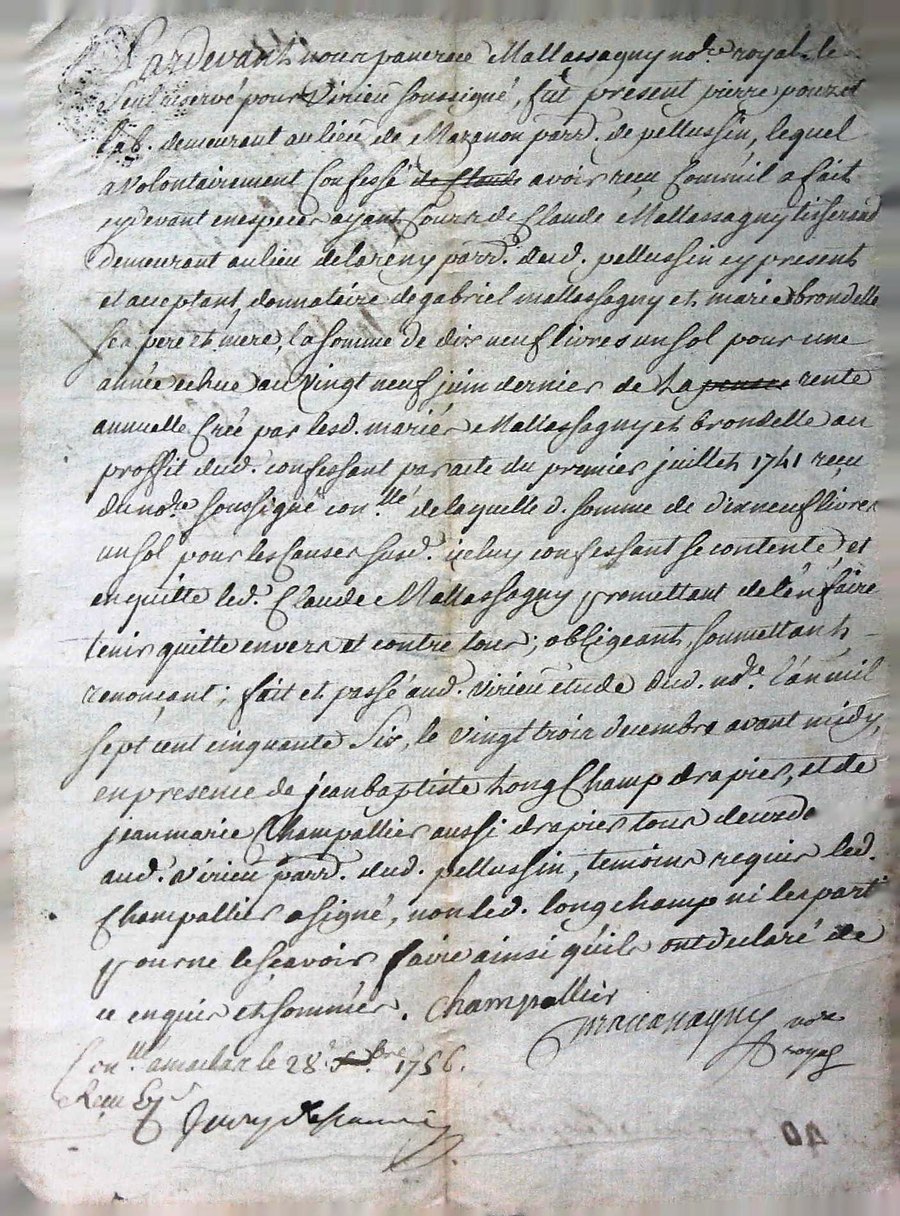 Pardevant nous pancrace Mallassagny no.re royal le
seul reservé pour Virieu soussigné, fut present pierre pouzet
lab. demeurant au lieu de Mazenon parr. de pellussin, lequel
a volontairement Confessé de Claude avoir reçu Comm'il a fait
cy devant en especes ayant Cours de Claude Mallassagny tisserand
demeurant au lieu de parr. dud. pellussin cy present
et acceptant, donnataire de gabriel mallassagny et marie brondelle
ses pere et mere, la somme de dix neuf livres un sol pour une
année echue au vingt neuf juin dernier de la rente
annuelle Créé par lesd. mariés Mallassagny et brondelle au
proffit dud. confessant par acte du premier juillet 1741 reçu
du no.re soussigné con.llé de laquelle d. somme de dix neuf livres
un sol pour les Causes susd. iceluy confessant se contente, et
en quitte led. Claude Mallassagny promettant de l'en faire
tenir quitte envers et contre tous; obligeant, soumettant
renonçant; fait et passé aud. virieu étude dud. no.re l'an mil
sept cent cinquante Six, le vingt trois decembre avant midy,
en presence de jean baptiste Long Champ drapier, et de
jean marie Champallier aussi drapier tous deux de
aud. virieu parr. dud. pellussin, temoins requis led.
Champallier a signé, non led. longchamp ni les part.
pour ne le sçavoir faire ainsi qu'ils ont declaré de
ce enquis et sommés. Champallier
Mallassagny no.re
royal
Con.llé a maclas le 28.e bre 1756.
Reçu
40